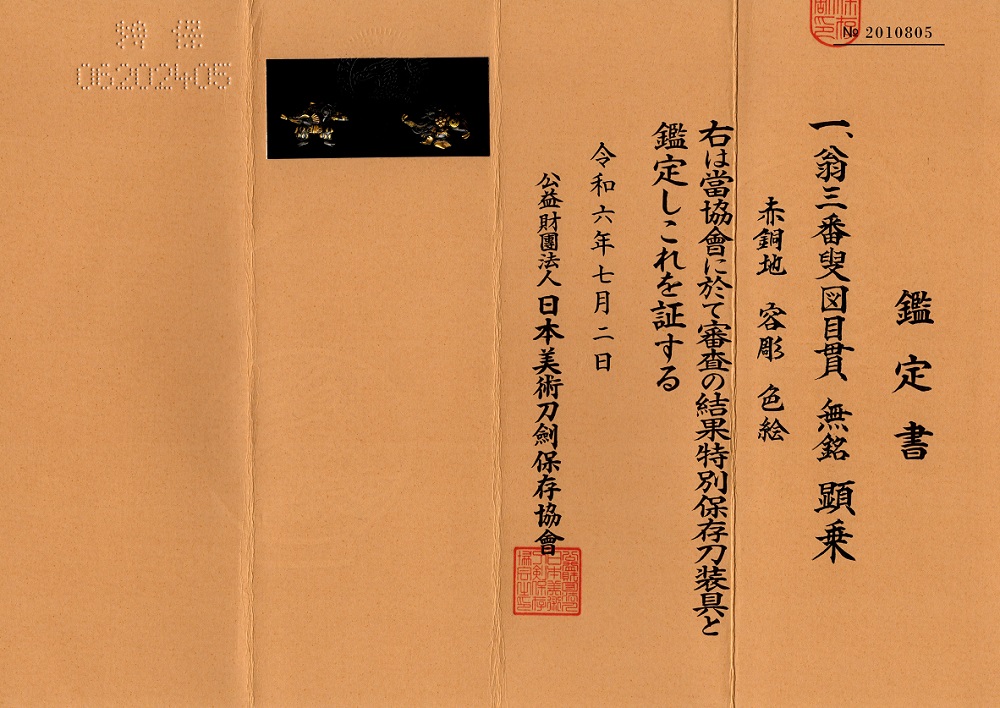 № 2010805
鑑定書
一、翁三番叟図目貫 無銘 顕乗
赤銅地 容彫 色絵
右は當協會に於て審査の結果特別保存刀装具と
鑑定しこれを証する
令和六年七月二日
公益財團法人 日本美術刀剣保存協會
特保
06202405